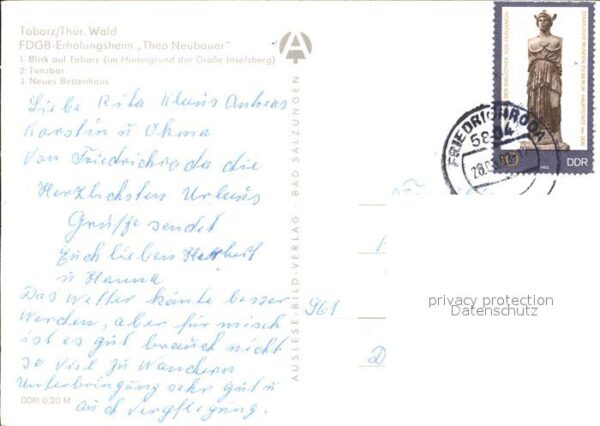 Tabarz/Thür. Wald
FDGB-Erholungsheim „Theo Neubauer"
1 Blick auf Tabarz (im Hintergrund der Große Inselsberg)
2 Tanzbar
3 Neues Bettenhaus
Liebe Rita Klaus Andreas
Karstin u Ohma
Von Friedrichroda die
Herzlichsten Urlaubs
Grüße sendet
Euch lieben Herbert
u Hanna
Das Wetter könte besser
werden, aber für mich
ist es gut brauch nicht
so viel zu Wandern
Unterbringung sehr gut u
auch Verpflegung.
DDR 0,20 M
AUSLESE-BILD-VERLAG · BAD SALZUNGEN
A
961
FRIEDRICHRODA
5804
DDR
STAATLICHE MUSEEN ZU BERLIN · HAUPTSTADT der DDR
DER BIBLIOTHEK VON PERGAMON
privacy protection
Datenschutz